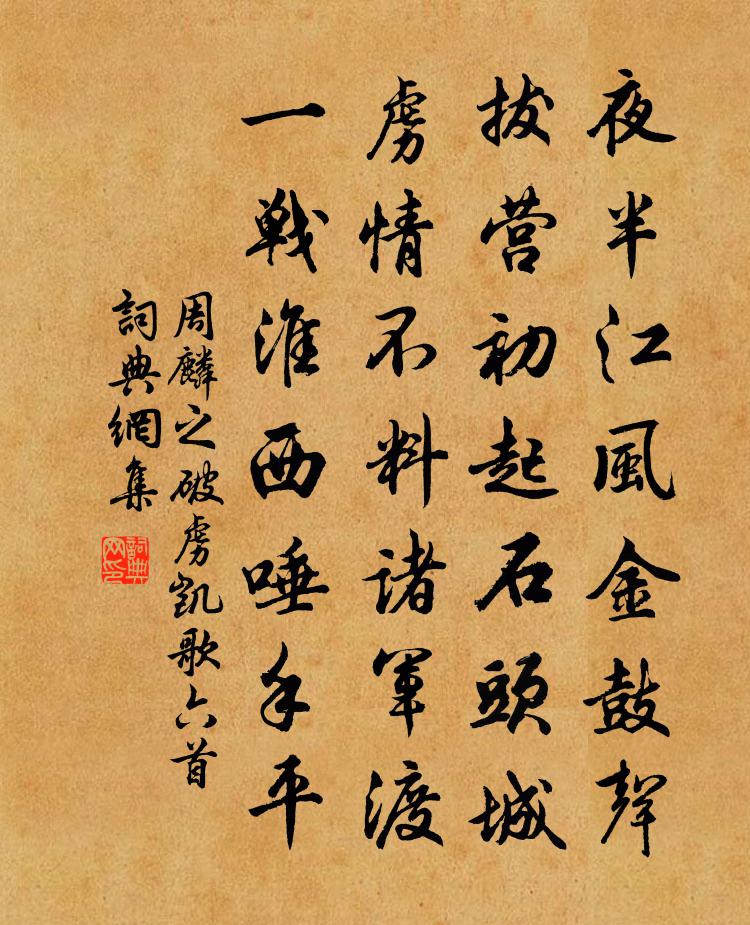 夜半江風金鼓聲
拔营初起石頭城
虜情不料諸軍渡
一戰淮西唾手平
周麟之破虜凱歌六首
詞典網集
詞典
网印